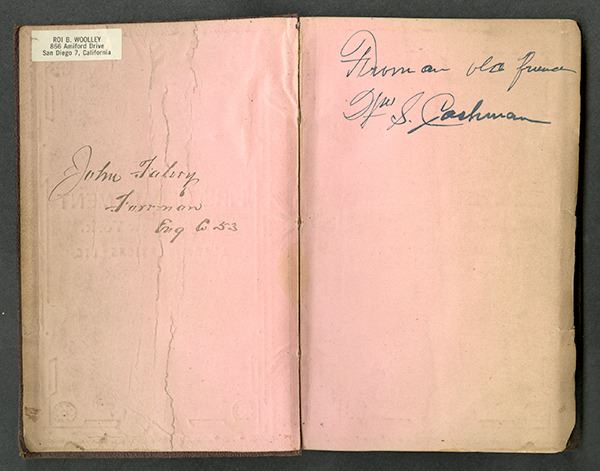 ROI B. WOOLLEY
866 Amiford Drive
San Diego 7, California
John
Foreman
Eng Co 53
From an old friend
Wm S. Cashman